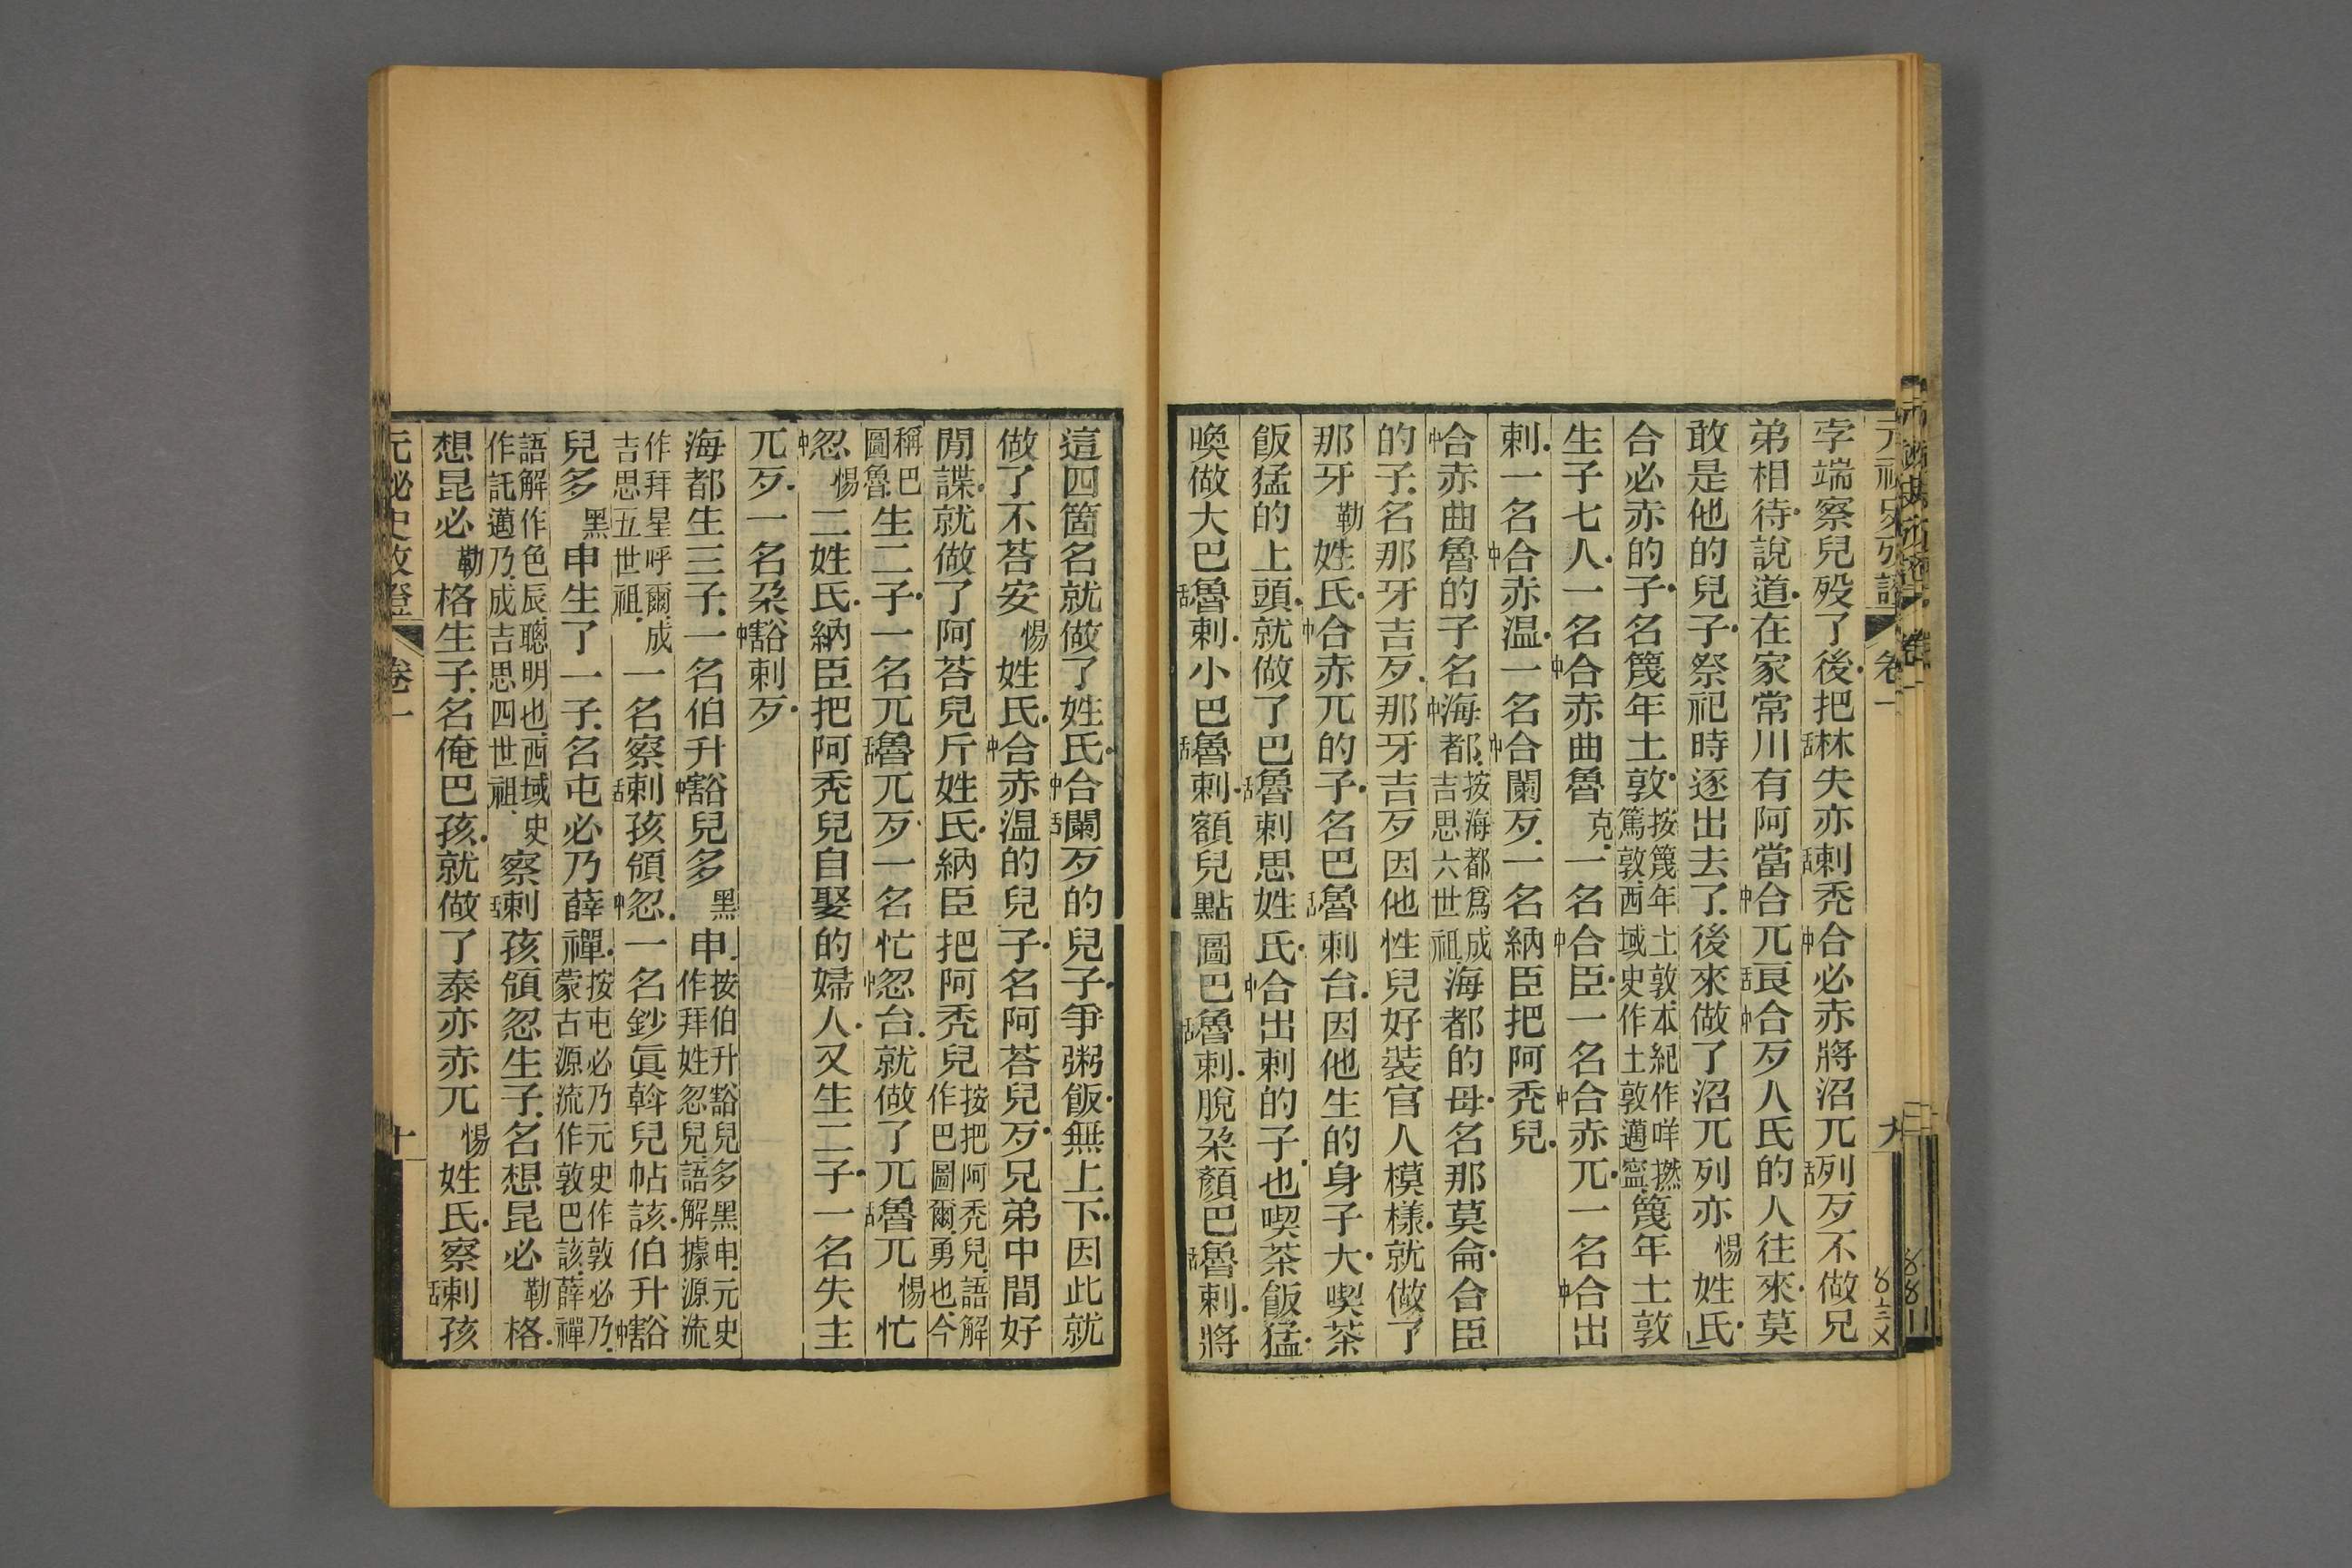 孛端察兒歿了後把舌林失亦舌剌禿中合必赤將沼兀舌列歹不做兄
弟相待說道在家常川有阿當中合兀舌良中合歹人氏的人往來莫
敢是他的兒子祭祀時逐出去了後來做了沼兀列亦惕姓氏
合必赤的子名篾年土敦按篾年土敦本紀作咩撚篤敦西域史作土敦邁寧篾年土敦
生子七人一名中合赤曲魯克一名中合臣一名中合赤兀一名中合出
剌一名中合赤温一名中合闌歹一名納臣把阿禿兒
中合赤曲魯的子名中海都按海都爲成吉思六世祖海都的母名那莫侖合臣
的子名那牙吉歹那牙吉歹因他性兒好裝官人模樣就做了
那牙勒姓氏中合赤兀的子名巴舌魯剌台因他生的身子大喫茶
飯猛的上頭就做了巴舌魯剌思姓氏中合出剌的子也喫茶飯猛
喚做大巴舌魯剌小巴舌魯剌額兒點圖巴舌魯剌脫朶顏巴舌魯剌將
這四箇名就做了姓氏中合舌闌歹的兒子爭粥飯無上下因此就
做了不荅安惕姓氏中合赤温的兒子名阿荅兒歹兄弟中間好
閒諜就做了阿荅兒斤姓氏納臣把阿禿兒按把阿禿兒語解作巴圖爾勇也今
稱巴圖魯生二子一名兀舌魯兀歹一名忙中忽台就做了兀舌魯兀惕忙
中忽惕二姓氏納臣把阿禿兒自娶的婦人又生二子一名失主
兀歹一名朶中豁剌歹
海都生三子一名伯升中豁兒多黑申按伯升豁兒多黑申元史作拜姓忽兒語解據源流
作拜星呼爾成吉思五世祖一名察舌剌孩領中忽一名鈔眞斡兒帖該伯升中豁
兒多黑申生了一子名屯必乃薛禪按屯必乃元史作敦必乃蒙古源流作敦巴該薛禪
語解作色辰聰明也西域史作託邁乃成吉思四世祖察舌剌孩領忽生子名想昆必勒格
想昆必勒格生子名俺巴孩就做了泰亦赤兀惕姓氏察舌剌孩
元祕史攷證 卷一 十